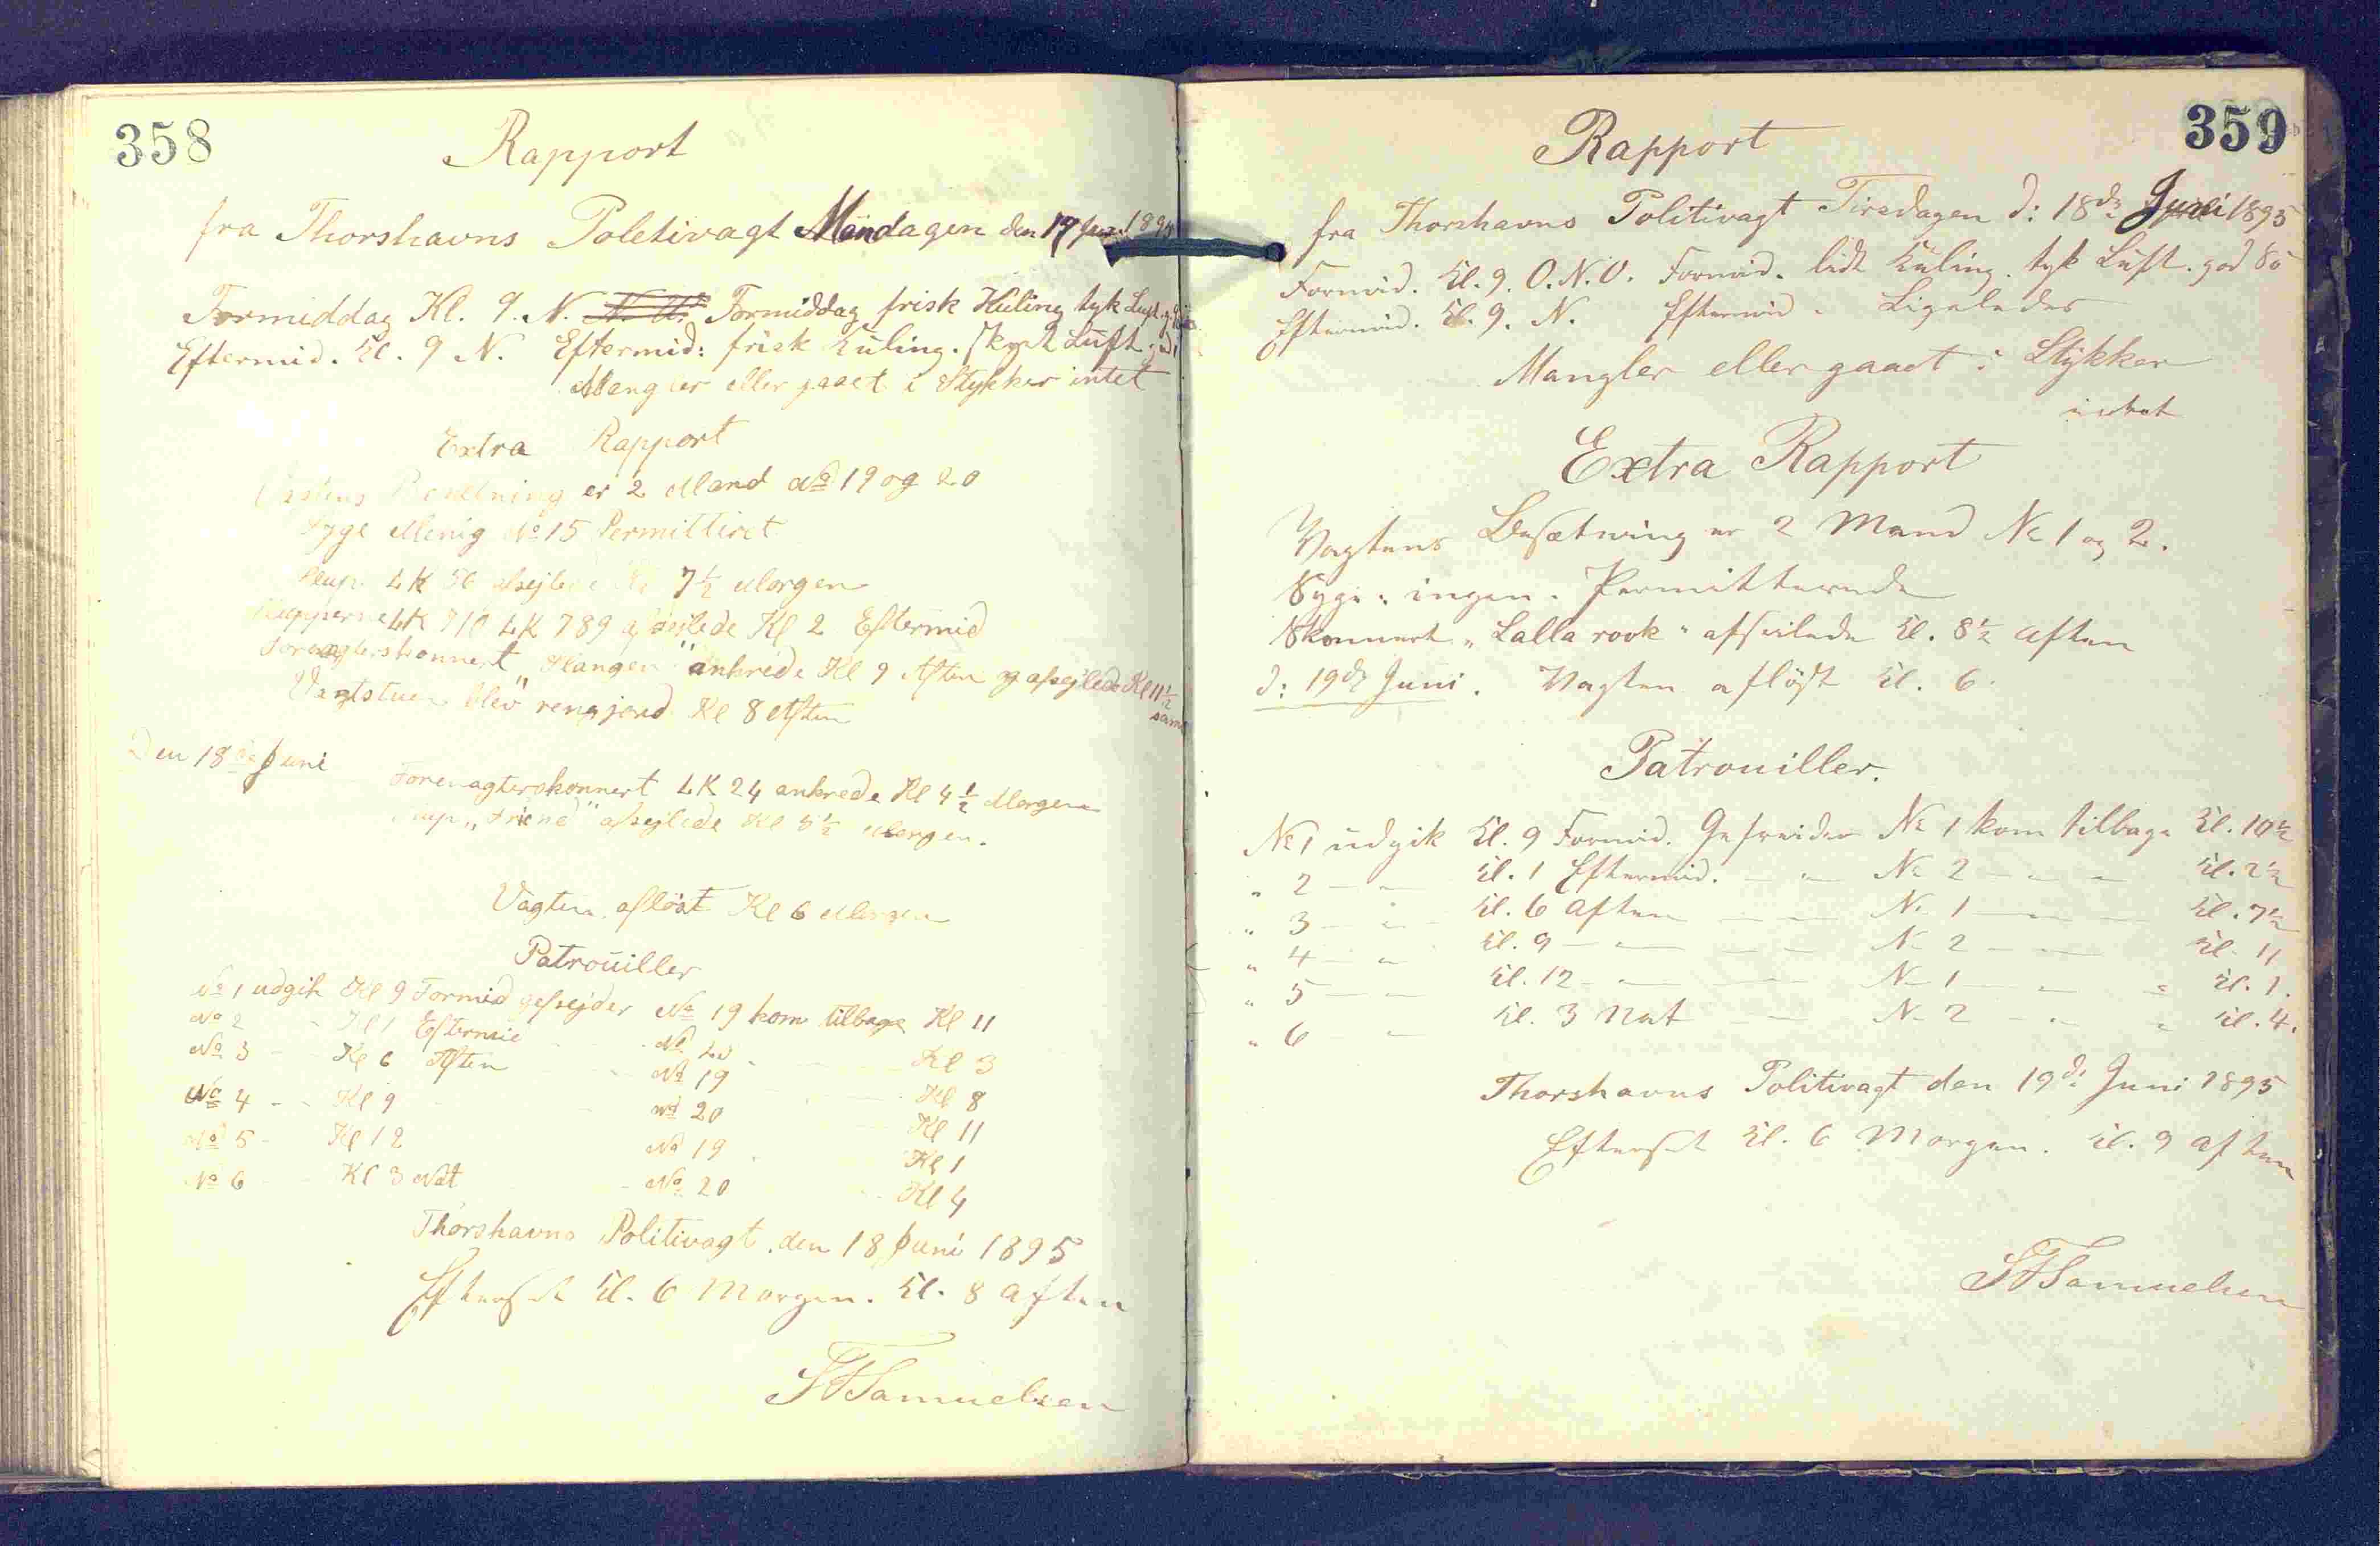 358
Rapport
fra Thorshavns Poletivagt Mandagen den 17 Juni 189
Formiddag Kl. 9. N. N. Formiddag frisk Kuling tyk Luft. g.
Eftermid. Kl. 9 N. Eftermid: frisk Kuling. skyet Luft. god
Mangler eller gaaet i Stykker intet
Extra Rapport
Vagtens Besætning er 2 Mand No 19 og 20
Syge Menig No 15 Permitteret
Slup LK 50 afsejlede Kl 7½ Morgen
Slupperne LK 710 LK 789 afsejlede Kl 2 Eftermid
Foremagterskonnert "Hangen" ankrede Kl 9 Aften og afsejlede Kl 11½
sam
Vagtstuen blev rengjord Kl 8 Aften
Den 18de Juni
Foremagterskonnert LK 24 ankrede Kl 4½ Morgen
Slup "Friend" afsejlede Kl 5½ Morgen.
Vagten afløst Kl 6 Morgen
Patrouiller
No 1 udgik Kl 9 Formid gefrejder No 19 kom tilbage Kl 11
No 2 - - Kl 1 Eftermid - - No 20 - - Kl 3
No 3 - - Kl 6 Aften - - No 19 - - Kl 8
No 4 - - Kl 9 - - No 20 - - Kl 11
No 5 - Kl 12 No 19 - Kl 1
No 6 - - Kl 3 Nat - No 20 - - Kl 4
Thorshavns Politivagt. den 18 Juni 1895
Efterset Kl. 6 Morgen. Kl. 8 Aften
Samuelsen
359
Rapport
fra Thorshavns Politivagt Tirsdagen d: 18de Juni 1895
Formid. Kl. 9. O.N.O. Formid. lidt Kuling. tyk Luft. god Sö
Eftermid. Kl. 9. N. Eftermid. Ligeledes
Mangler eller gaaet i Stykker
intet
Extra Rapport
Vagtens Besætning er 2 Mand No 1 og 2.
Syge: ingen. Permitterede
Skonnert "Lalla rook" afseilede Kl. 8½ Aften
d: 19de Juni. Vagten aflöst Kl. 6.
Patrouiller.
No 1 udgik Kl. 9 Formid. Gefreider No 1 kom tilbage Kl. 10½
" 2 — " Kl. 1 Eftermid. — " No 2 — " — Kl. 2½
" 3 — " Kl. 6 Aften — — No 1 — — — Kl. 7½
" 4 — " Kl. 9 — — — — No 2 — — Kl. 11
" 5 — — Kl. 12 — — — No 1 — — " Kl. 1.
" 6 — Kl. 3 Nat — — No 2 — — " Kl. 4.
Thorshavns Politivagt den 19d: Juni 1895
Efterset Kl. 6 Morgen. Kl. 9 Aften
Samuelsen